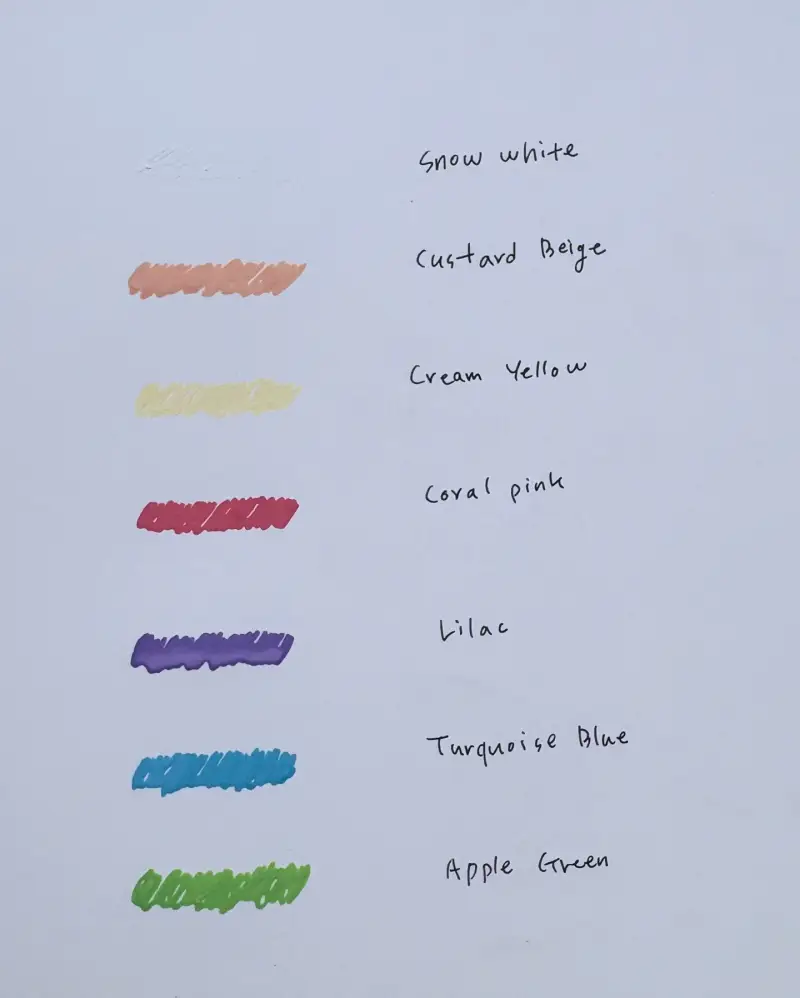 Snow white
Custard Beige
Cream Yellow
Coral pink
Lilac
Turquoise Blue
Apple Green